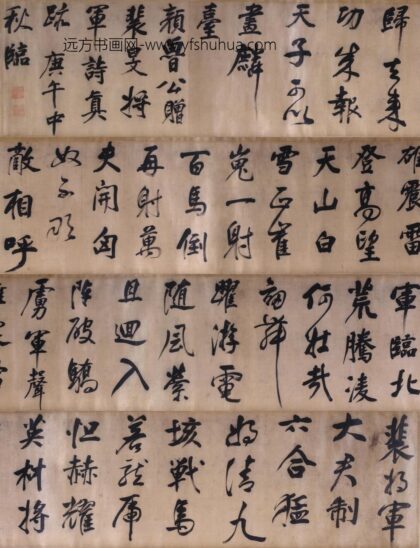 裴将軍
大夫制
六合猛
将清九
垓戰馬
若龍虎
怛赫耀
英材将
軍臨北
荒騰凌
何壮哉
劔舞
躍游電
随風縈
且迴入
陣破驕
虜軍聲
雄震雷
登高望
天山白
雪正崔
嵬一射
百馬倒
再射萬
夫開匈
奴不敢
敵相呼
歸去来
功成報
天子可以
畫麟
臺
顏魯公贈
裴旻将
軍詩真
跡庚午中
秋臨
远方书画网-www.yfshuhua.com